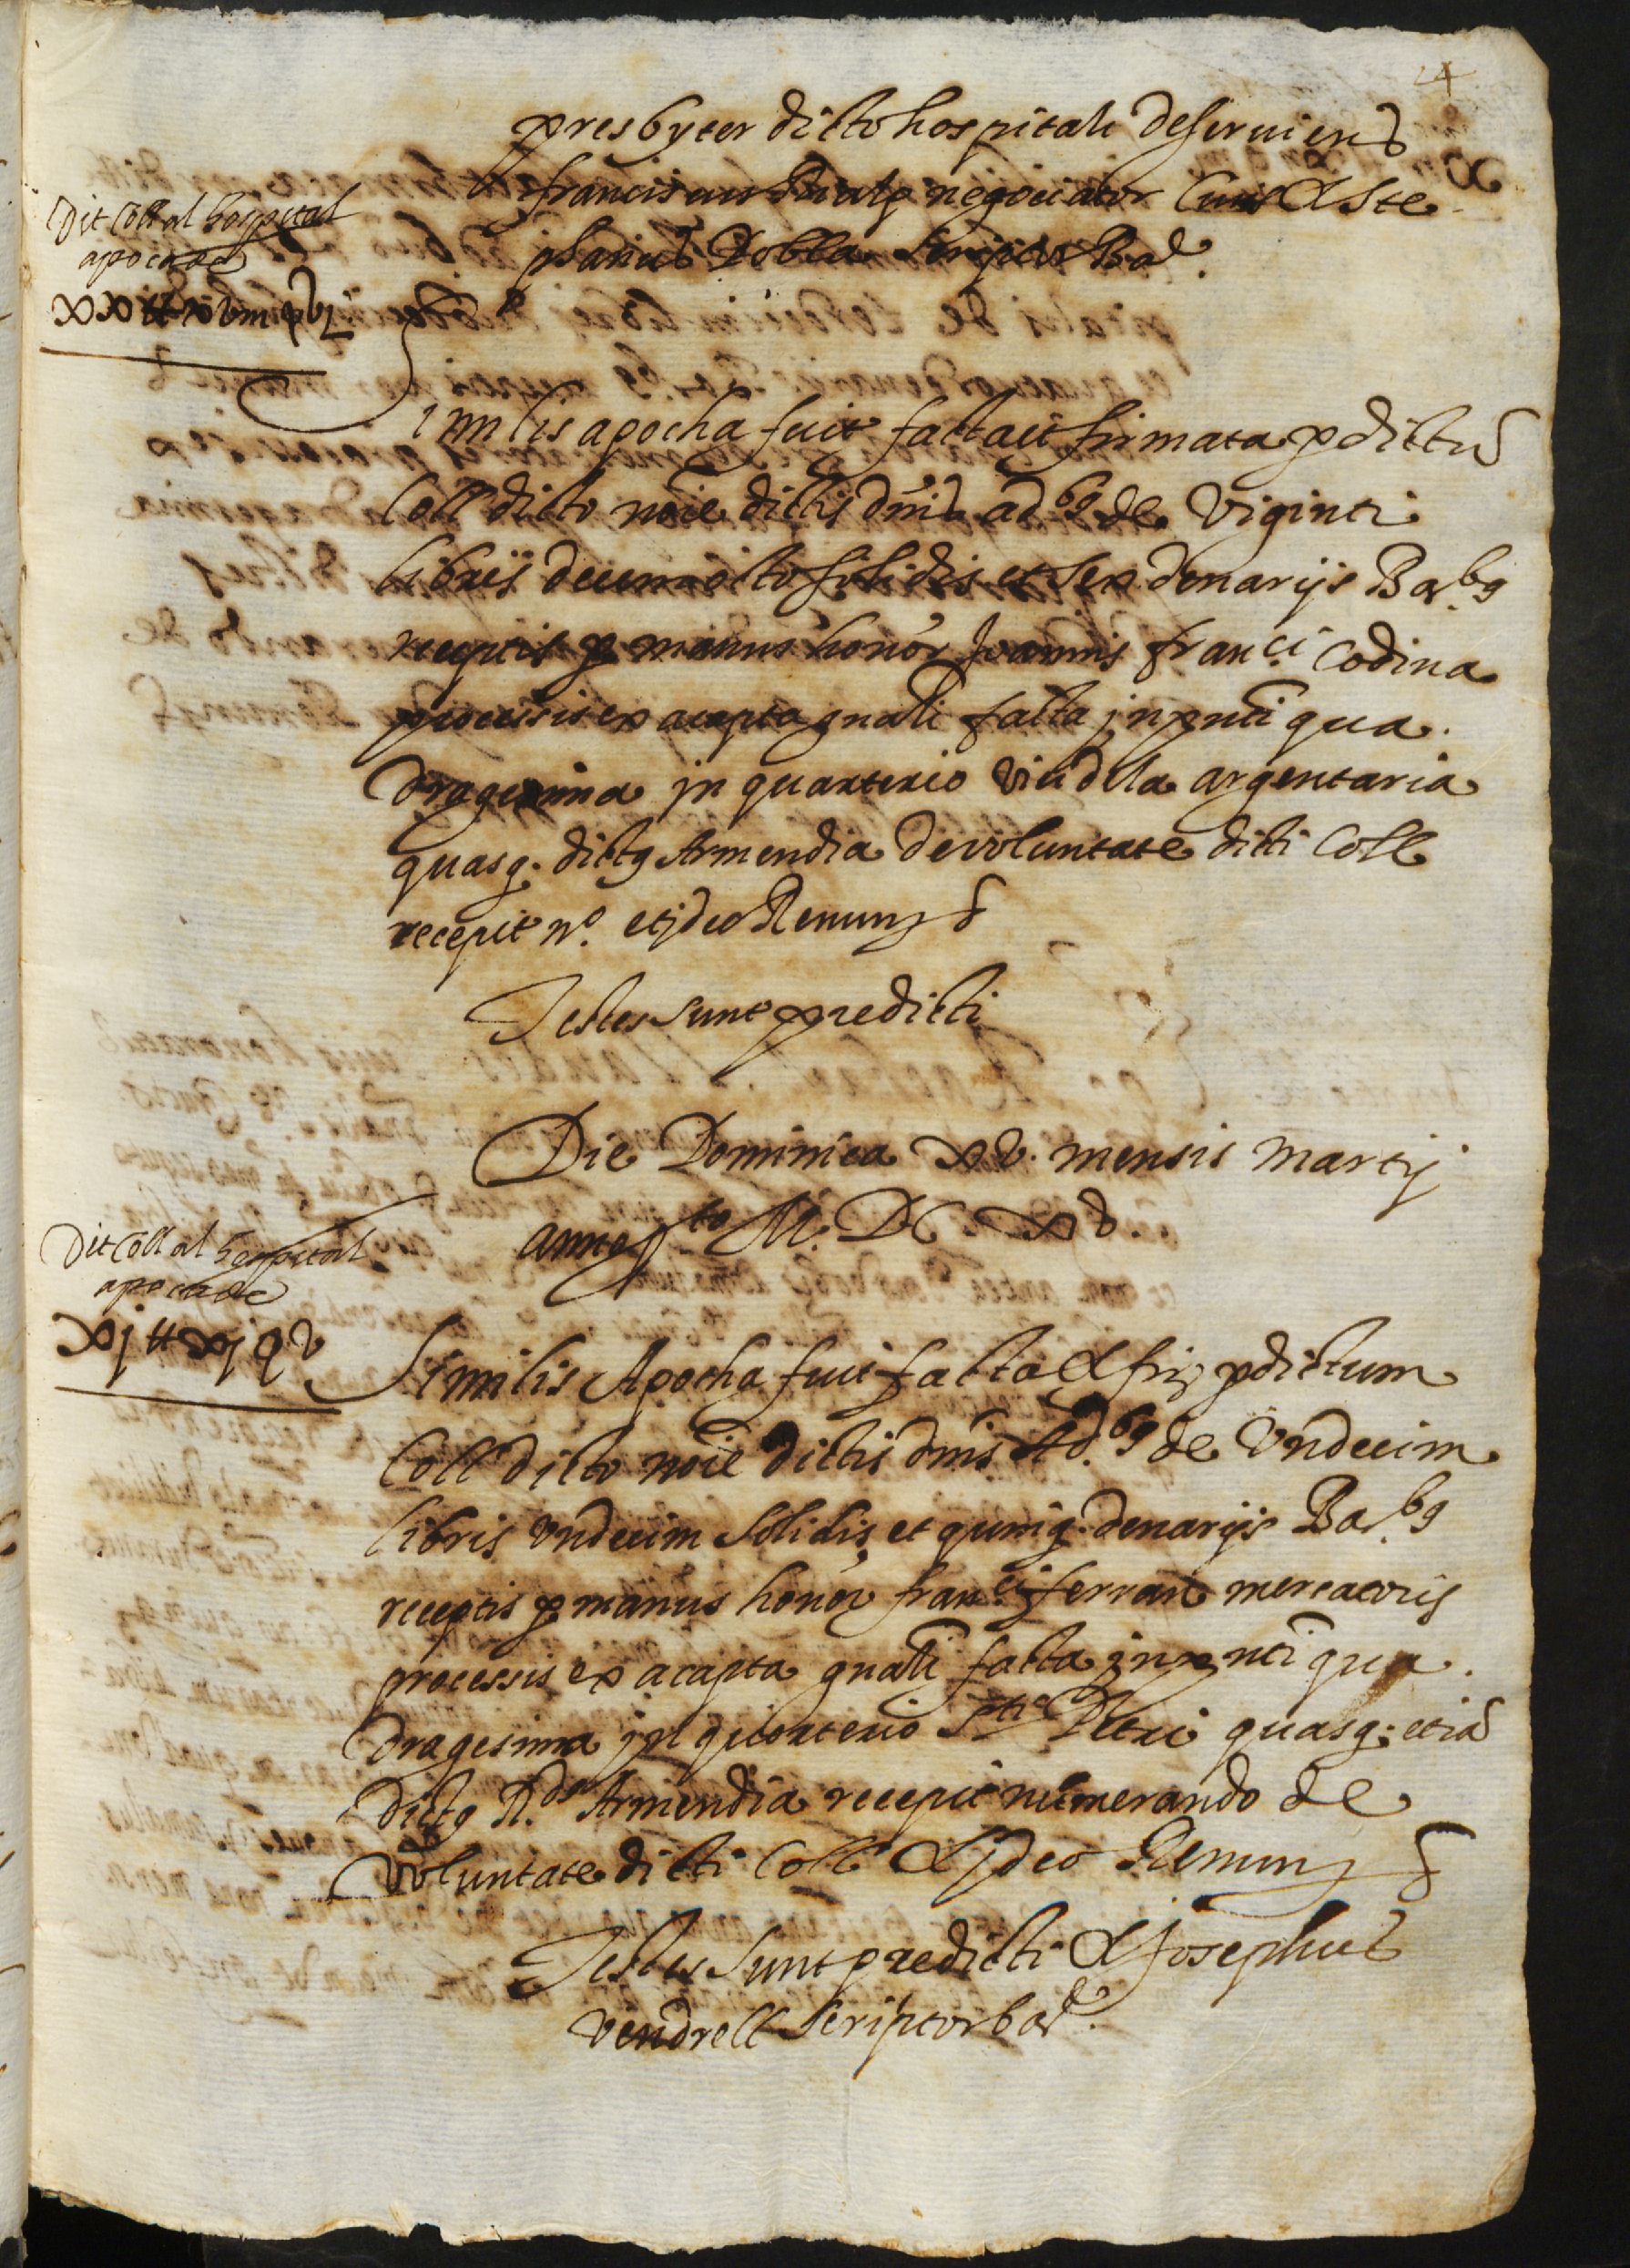 presbyter dicto hospitali deseruiens
franciscus negociator Ciuis & Ste
phanus Dobla scriptor Bar.
Dit Coll al hospital
apoca de
xx ll xviii s vi
Similis apocha fuit facta et firmata p dictu
Coll dicto noie dictis dnis adbg de viginti
libris decem octo solidis et sex denarijs Bar.bg
receptis p manus honor Joannis franci Codina
processis ex acapta gnali facta in pnti qua
dragesima in quarterio viu dela argentaria
quasq. dictg Armendia de voluntate dicti Coll
recepit no. et ideo Renun
Testes sunt predicti
Die Dominica xv. mensis martij
anno pto M. DC. xv.
Dit Coll al hospital
apoca de
xj ll xj s v
Similis Apocha fuit facta & fir p dictum
Coll dicto noie dictis dnis Ad.bg de Vndecim
libris vndecim solidis et quinq. denarijs Bar.bg
receptis p manus honor franci ferran mercatoris
processis ex acapta gnali facta in pnti qua
dragesima in quarterio Sti Petri quasq. etia
dictg R.ds Armendia recepit numerando de
voluntate dicti Coll & ideo Renun
Testes sunt predicti & Josephus
vendrell scriptor bar.